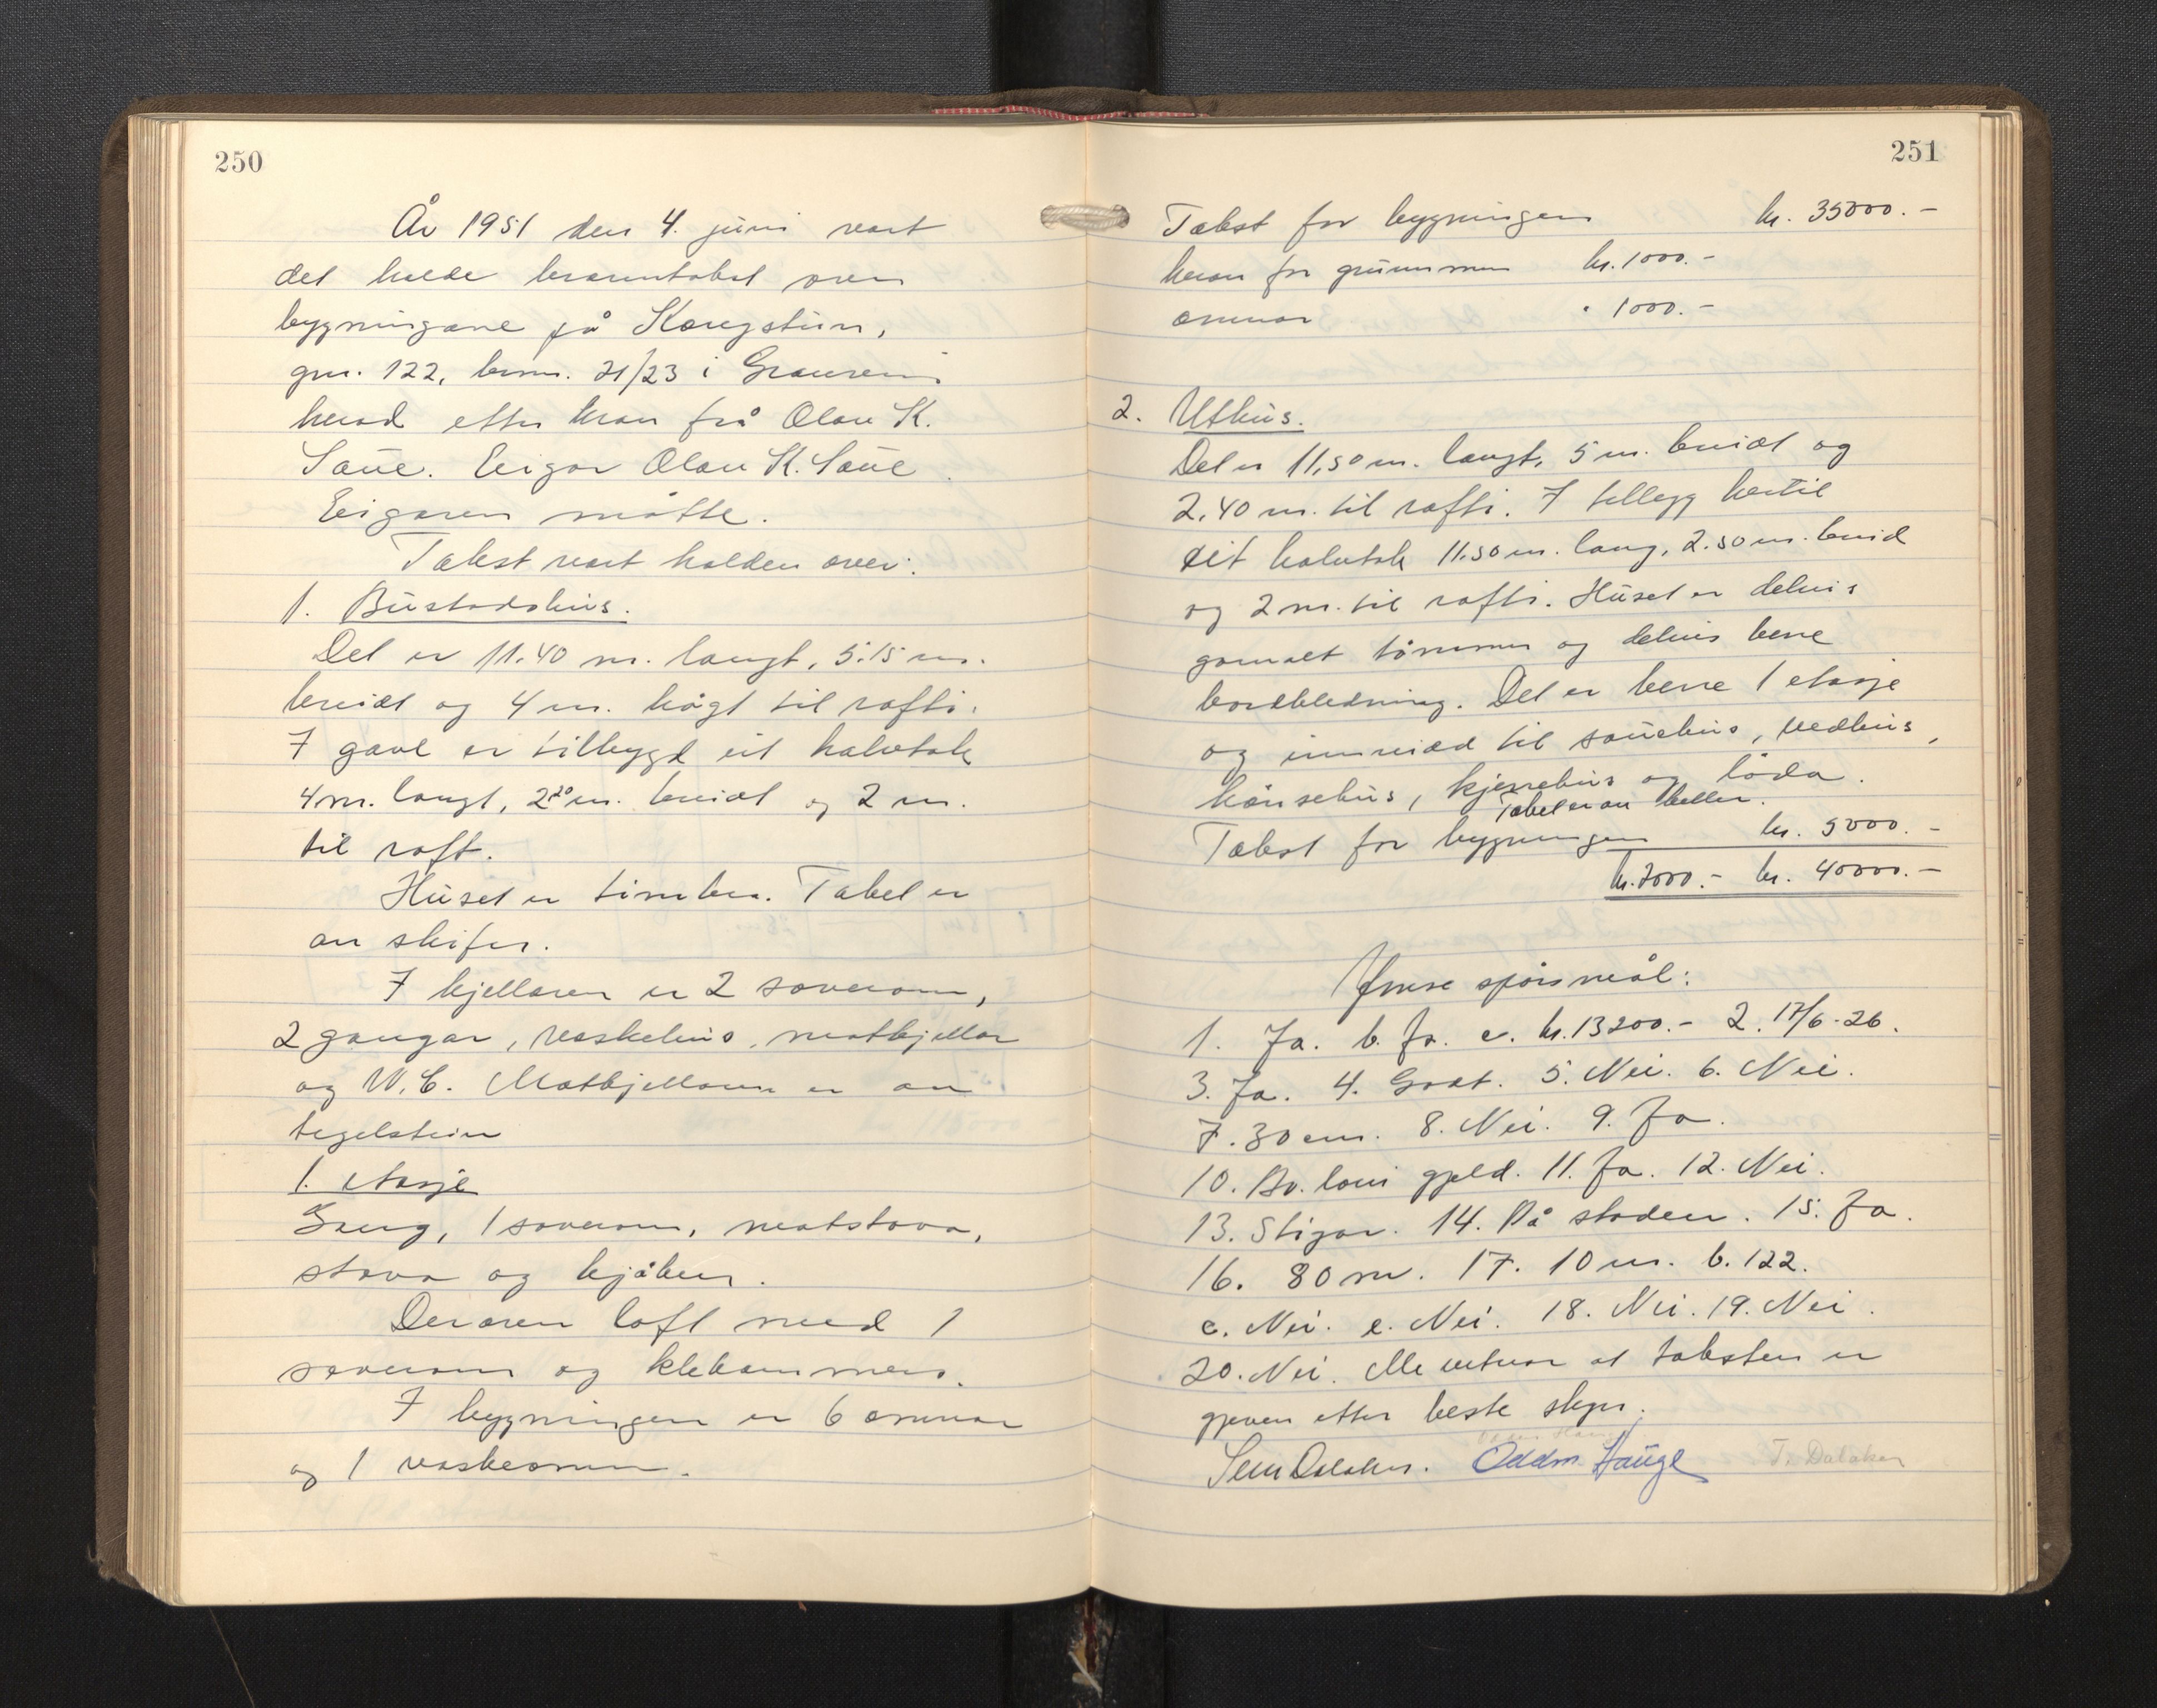 250
År 1951 den 4. juni vart
det halde branntakst over
bygningane på Kongstun,
gnr. 122, brnr. 21/23 i Granvin
herad etter krav frå Olav K.
Saue. Eigar Olav K. Saue
Eigaren møtte.
Takst vart halden over:
1. Bustadshus.
Det er 11.40 m. langt, 5.15 m.
breidt og 4 m. høgt til rafti.
I gavl er tilbygt eit halvtak
4 m. langt, 2²⁰ m. breidt og 2 m.
til raft.
Huset er timbra. Taket er
av skifer.
I kjellaren er 2 soverom,
2 gangar, vaskehus, matkjellar
og W.C. Matkjellaren er av
tegelstein
1. etasje
Gang, 1 soverom, matstova,
stova og kjøken.
Derover loft med 1
soverom og klekammers.
I bygningen er 6 omnar
og 1 vaskeomn.
251
Takst for bygningen kr. 35000.-
herav for grunnmur kr. 1000.-
omnar " 1000.-
2. Uthus.
Det er 11,50 m. langt, 5 m. breidt og
2.40 m. til rafti. I tillegg hertil
eit halvtak 11.50 m. lang, 2.50 m. breid
og 2 m. til rafti. Huset er delvis
gamalt tømmer og delvis berre
bordkledning. Det er berre 1 etasje
og innreidd til sauehus, vedhus,
hønsehus, kjerrehus og løda.
Taket er av heller.
Takst for bygningen kr. 5000.-
kr. 2000.- kr. 40000.-
Ymse spørsmål:
1. Ja. b. Ja. c. kr. 13200.- 2. 17/6-26.
3. Ja. 4. Godt. 5. Nei. 6. Nei.
7. 30 cm. 8. Nei. 9. Ja.
10. Av. lovi gjeld. 11. Ja. 12. Nei.
13. Stigar. 14. På staden. 15. Ja.
16. 80 m. 17. 10 m. b. 122.
c. Nei. e. Nei. 18. Nei. 19. Nei.
20. Nei. Me vitnar at taksten er
gjeven etter beste skyn.
Dalaker. Oddm. Hauge T. Dalaker